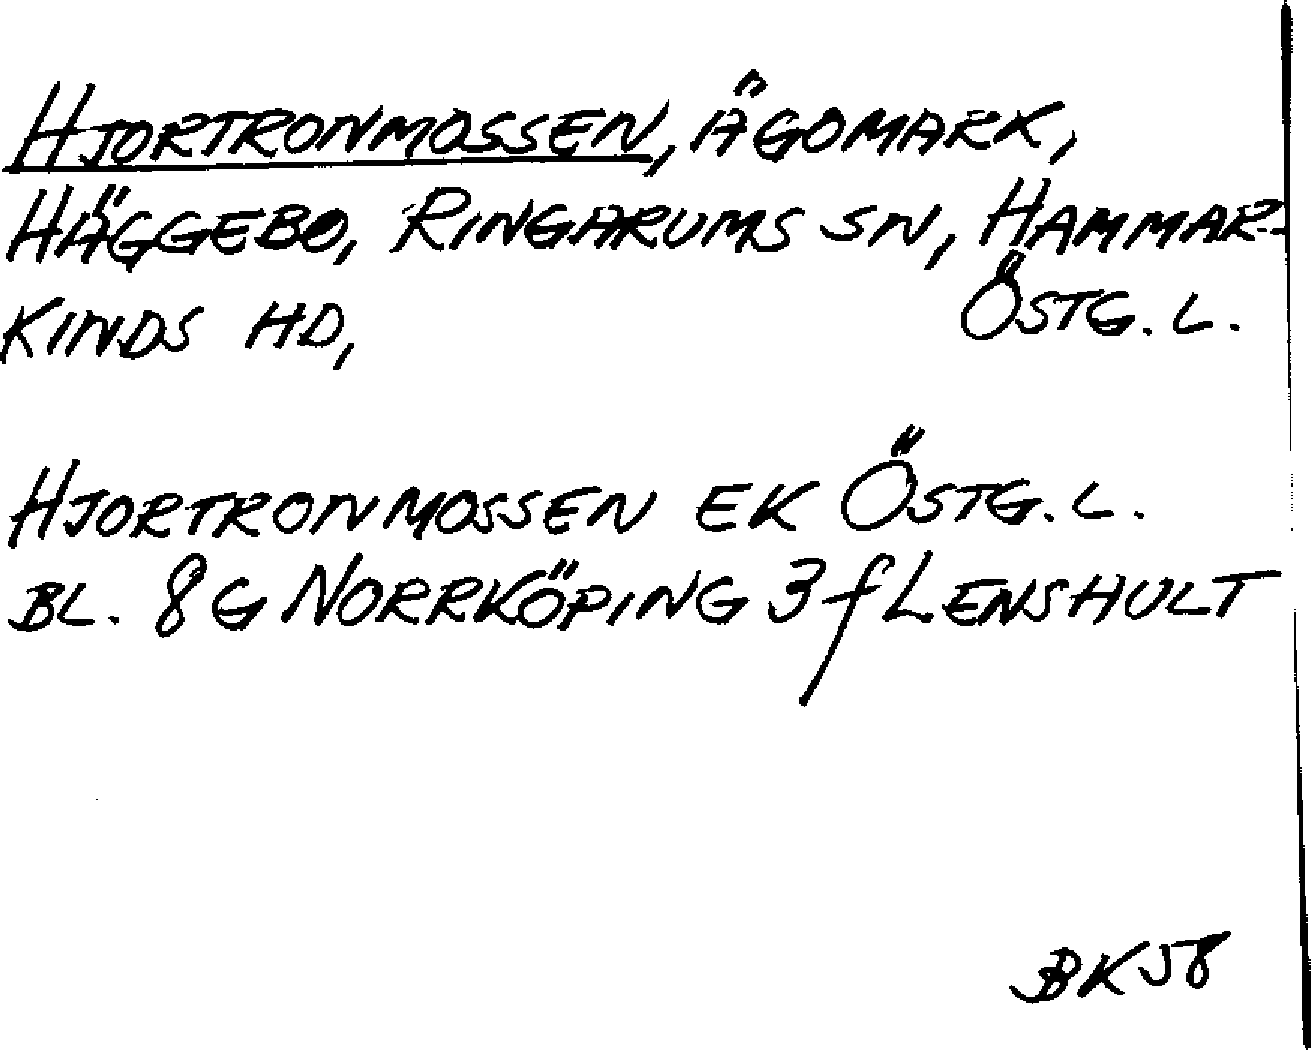 HJORTRONMOSSEN, ÄGOMARK,
HÄGGEBO, RINGARUMS SN, HAMMAR-
KINDS HD, ÖSTG. L.
HJORTRONMOSSEN EK ÖSTG. L.
BL. 8G NORRKÖPING 3f LENSHULT
BK58